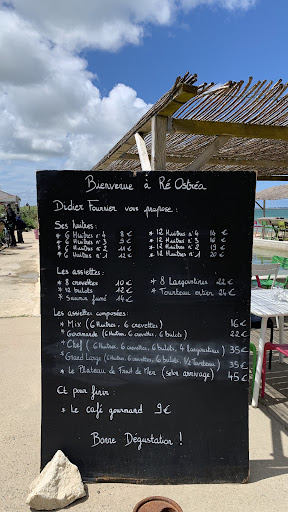 Bienvenue à Ré Ostréa
Didier Fournier vous propose :
Ses huîtres :
* 6 Huîtres n°4 8 € * 12 Huîtres n°4 14 €
* 6 Huîtres n°3 9 € * 12 Huîtres n°3 16 €
* 6 Huîtres n°2 * 12 Huîtres n°2 19 €
* 6 Huîtres n°1 12 € * 12 Huîtres n°1 20 €
Les assiettes :
* 8 crevettes 10 € * 8 Langoustines 22 €
* 12 bulots 12 € * Tourteau entier 24 €
* Saumon fumé 14 €
Les assiettes composées :
* Mix (6 Huîtres, 6 crevettes) 16 €
* Gourmande (6 Huîtres, 6 crevettes, 6 bulots) 22 €
* Chef (6 Huîtres, 6 crevettes, 6 bulots, 4 langoustines) 35 €
* Grand Large (6 Huîtres, 6 crevettes, 6 bulots, ½ Tourteau) 35 €
* Le Plateau de Fruit de Mer (selon arrivage) 45 €
Et pour finir :
* Le café gourmand 9 €
Bonne Dégustation !